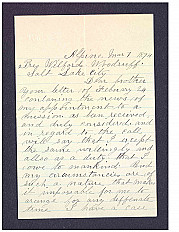 Alpine, Mar 1 1890
Pres Wilford Woodruff
Salt Lake City
Dear brother
your letter of Febuary 24
containing the news of
my appointment to a
mission as been received,
and duly considered and
in regard to the call
will say that I accept
the same willingly and
allso as a duty that I
owe to mankind. But
my circumstances are of
such a nature, that makes
it impossible for me to
arange for any
time I have